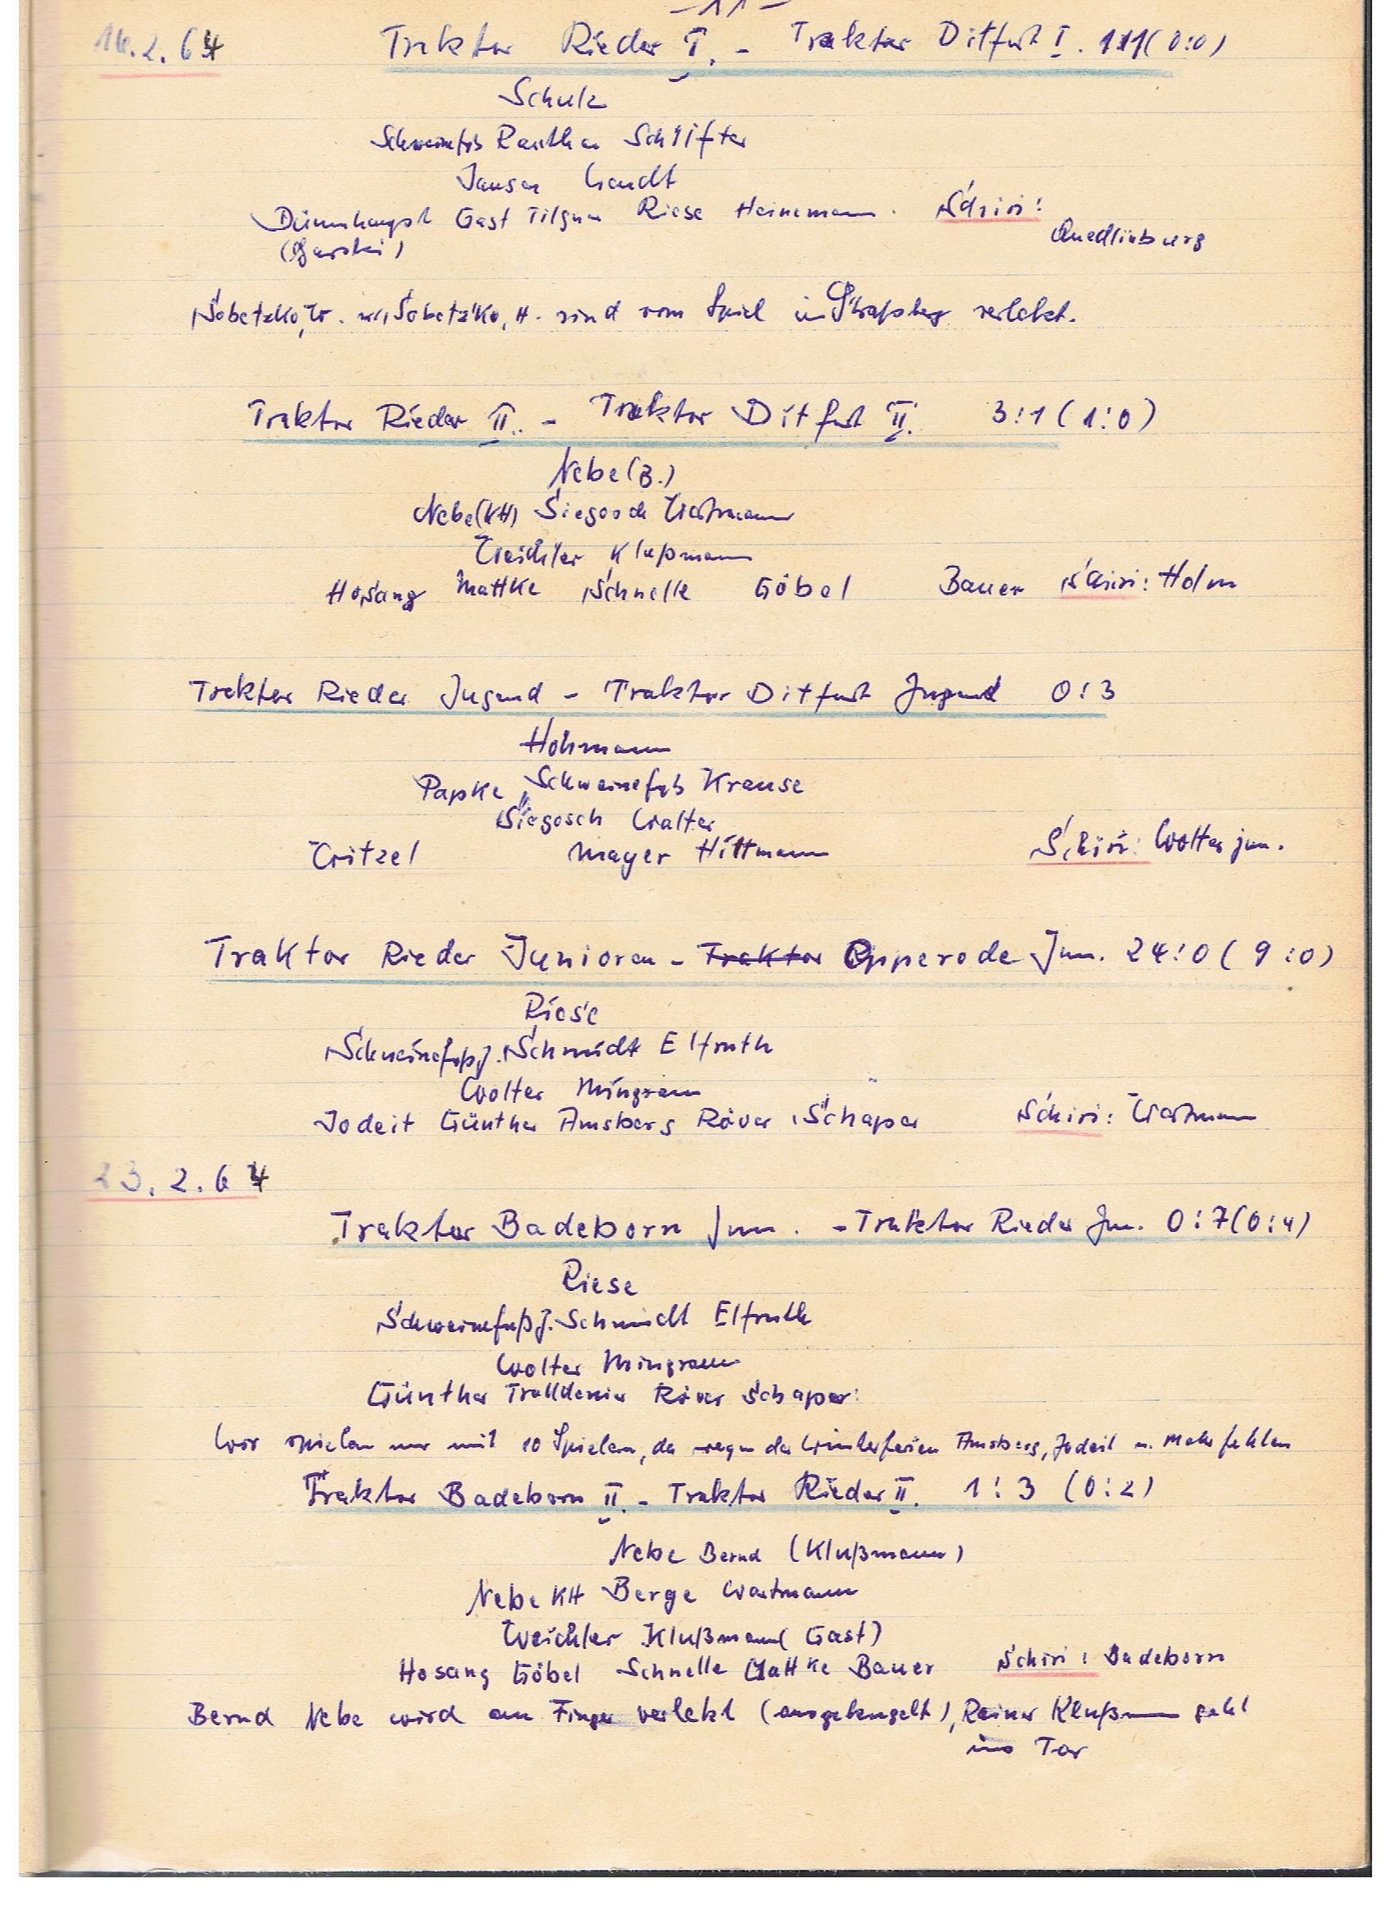 - 11 -
16.2.64 Traktor Rieder I. - Traktor Ditfurt I. 1:1 (0:0)
Schulz
Schweinefuß Rauthe Schlifter
Jansen Wendt
Dünnhaupt Gast Tilgner Riese Heinemann. Schiri:
Quedlinburg
Sobetzko, W. u. Sobetzko, H. sind vom Spiel in Straßberg verletzt.
Traktor Rieder II. - Traktor Ditfurt II. 3:1 (1:0)
Nebe (B.)
Nebe (KH) Siegosch Wartmann
Weichler Klußmann
Hosang Mattke Schnelle Göbel Bauer Schiri: Holm
Traktor Rieder Jugend - Traktor Ditfurt Jugend 0:3
Hohmann
Papke Schweinefuß Krause
Siegosch Walter
Critzel Mayer Hittmann Schiri: Wolter jun.
Traktor Rieder Junioren - Traktor Opperode Jun. 24:0 (9:0)
Riese
Schweinefuß J. Schmidt Elfruth
Wolter Mingram
Jodeit Günther Amsberg Röver Schaper Schiri: Wartmann
23.2.64
Traktor Badeborn Jun. - Traktor Rieder Jun. 0:7 (0:4)
Riese
Schweinefuß J. Schmidt Elfruth
Wolter Mingram
Günther Trolldenier Röver Schaper
Wir spielen nur mit 10 Spielern, da wegen der Winterferien Amsberg, Jodeit u. Mehr fehlen
Traktor Badeborn II. - Traktor Rieder II. 1:3 (0:2)
Nebe Bernd (Klußmann)
Nebe KH Berge Wartmann
Weichler Klußmann (Gast)
Hosang Göbel Schnelle Mattke Bauer Schiri: Badeborn
Bernd Nebe wird am Finger verletzt (ausgekugelt), Reiner Klußmann geht
ins Tor